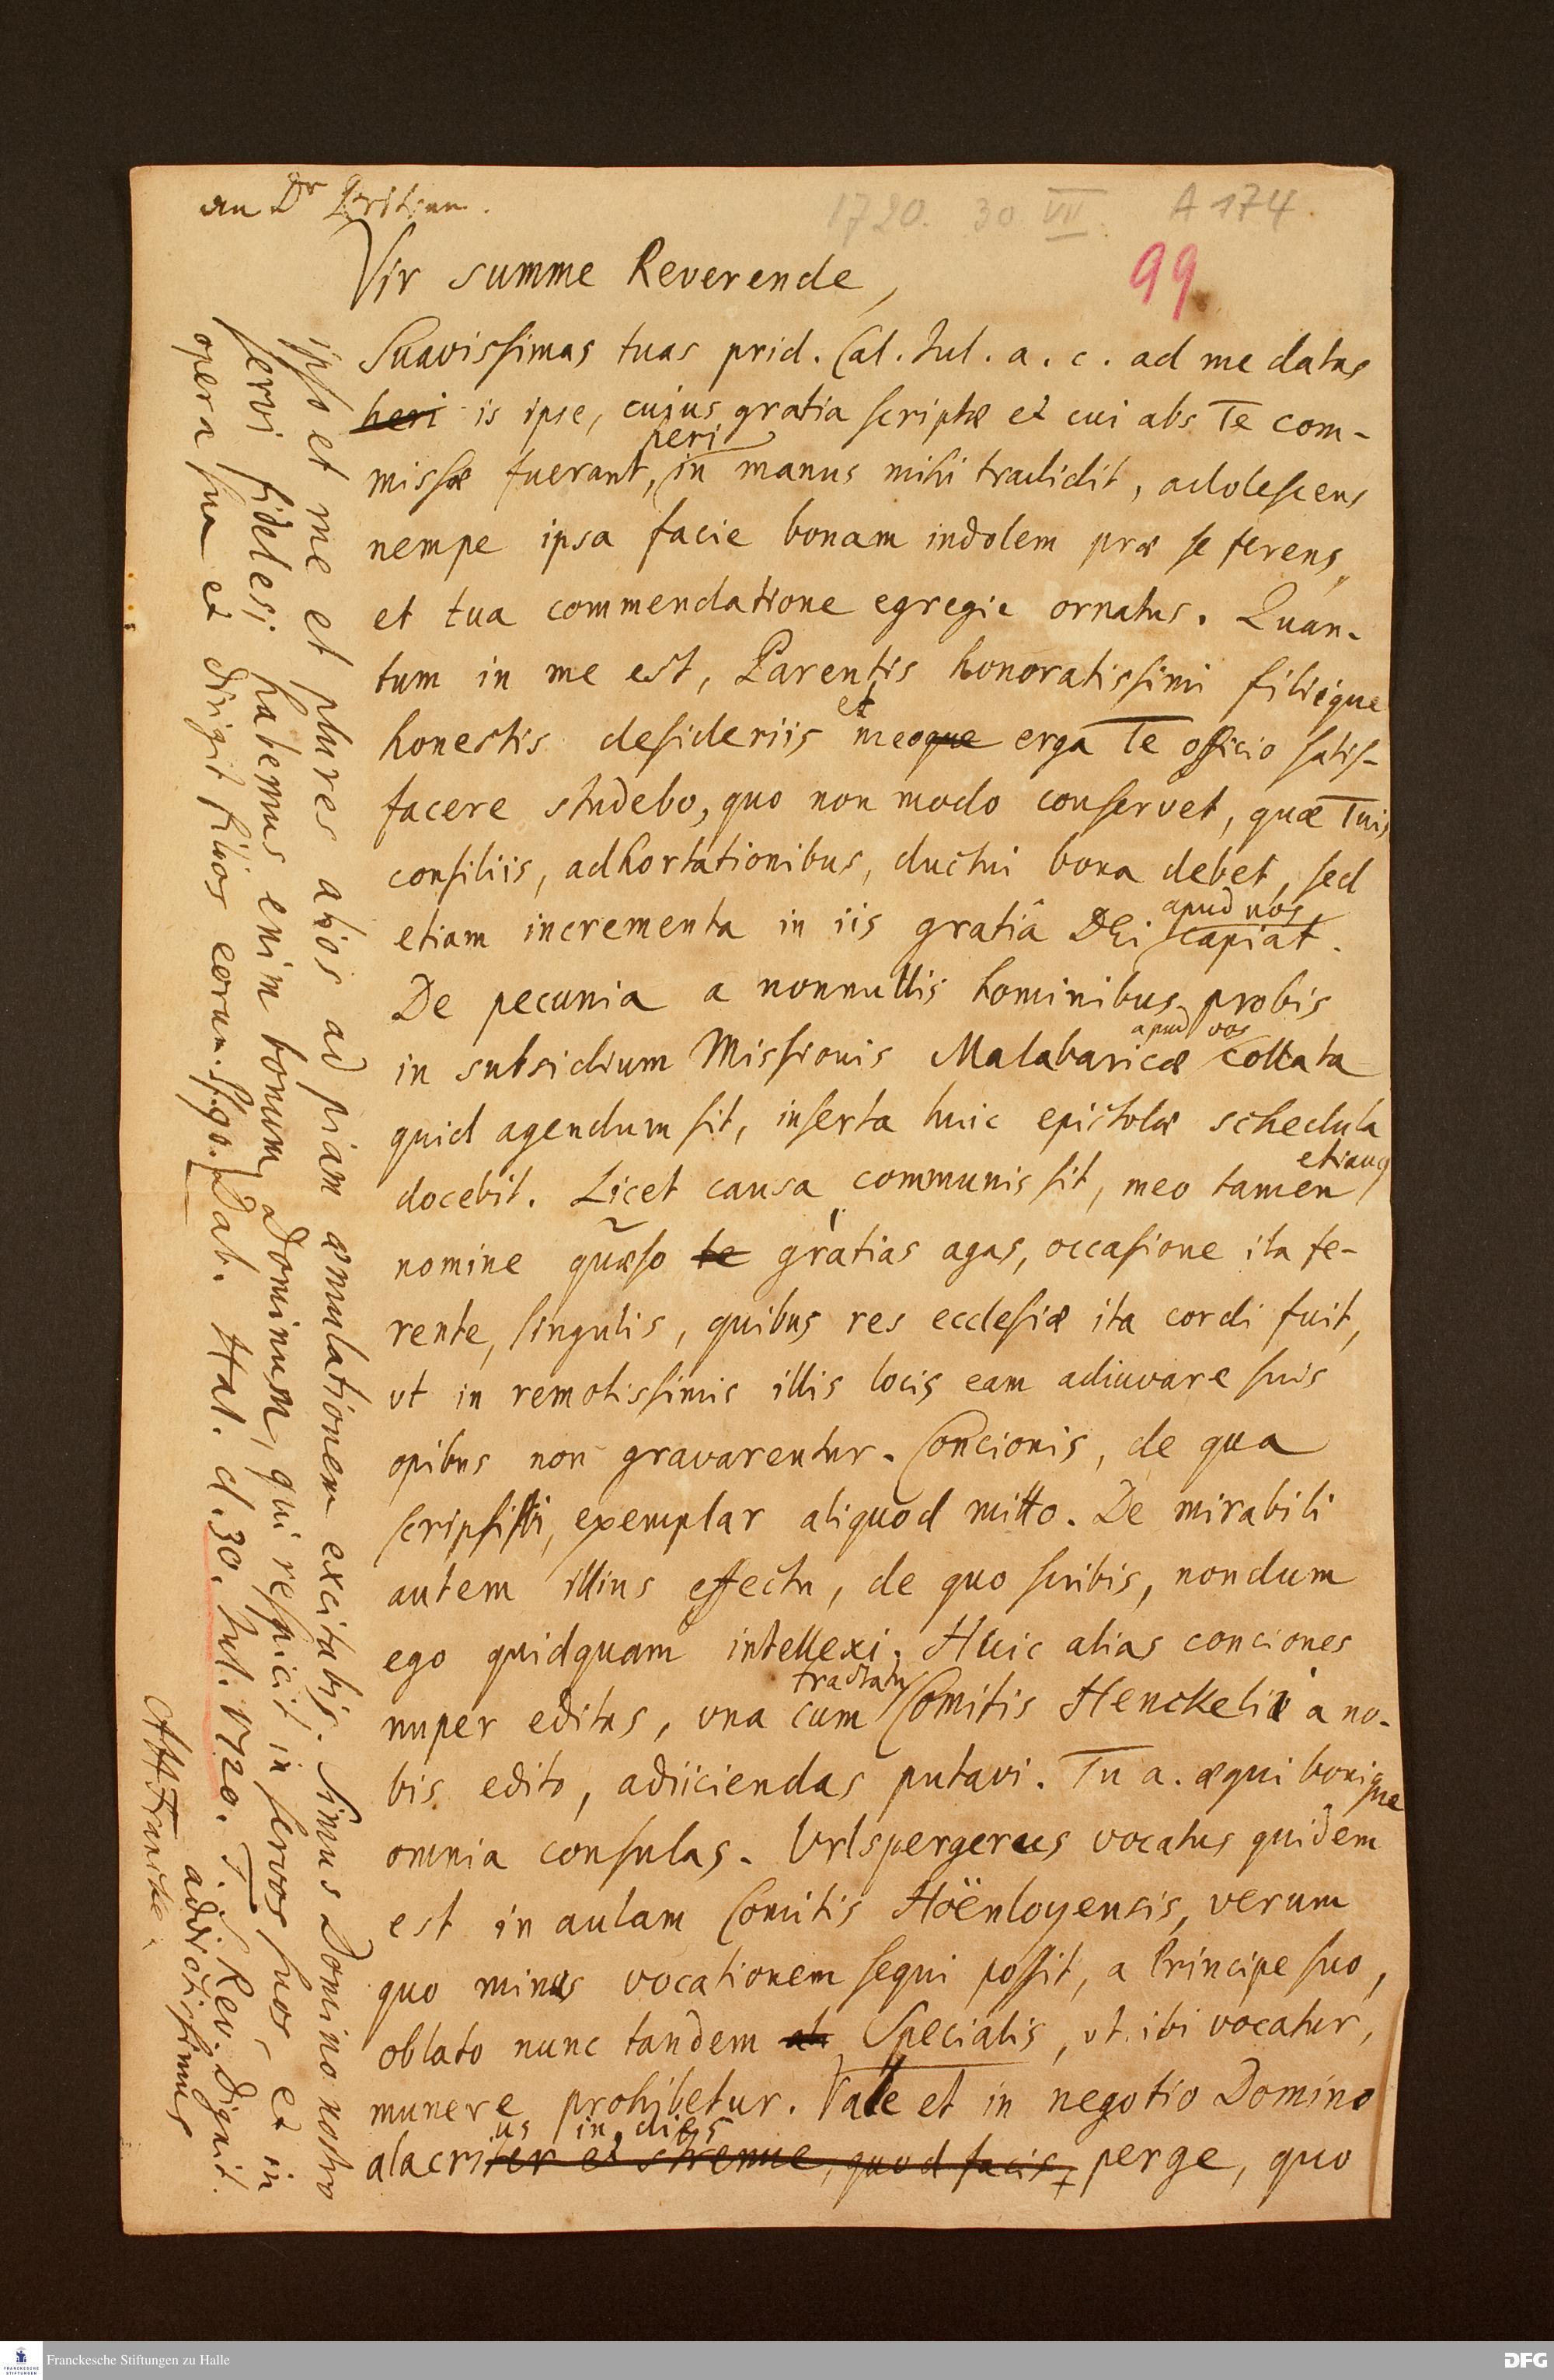 an Dr Pritium.
1720. 30 VII. A 174.
99
Vir summe Reverende,
Suavissimas tuas prid. Cal. Jul. a. c. ad me datas
heri is ipse, cujus gratia scriptæ et cui abs Te com-
heri
missæ fuerant, in manus mihi tradidit, adolescens
nempe ipsa facie bonam indolem præ se ferens,
et tua commendatione egregie ornatus. Quan-
tum in me est, Parentis honoratissimi filiique
et
honestis desideriis meoque erga Te officio satis-
facere studebo, quo non modo conservet, quæ Tuis
consiliis, adhortationibus, ductui bona debet, sed
apud nos
etiam incrementa in iis gratiâ DEi capiat.
De pecunia a nonnullis hominibus probis
apud vos
in subsidium Missionis Malabaricæ collata
quid agendum sit, inserta huic epistolæ schedula
etiam
docebit. Licet causa communis sit, meo tamen
nomine quæso te gratias agas, occasione ita fe-
rente, singulis, quibus res ecclesiæ ita cordi fuit,
vt in remotissimis illis locis eam adiuvare suis
opibus non gravarentur. Concionis, de qua
scripsisti, exemplar aliquod mitto. De mirabili
autem illius effectu, de quo scribis, nondum
ego quidquam intellexi. Huic alias conciones
tractatu
nuper editas, vna cum Comitis Henckelii à no-
bis edito, adiiciendas putavi. Tu a. æqui bonique
omnia consulas. Vrlspergerus vocatus quidem
est in aulam Comitis Höenloyensis, verum
quo minus vocationem sequi possit, a Principe suo,
oblato nunc tandem ab Specialis, vt ibi vocatur,
munere prohibetur. Vale et in negotio Domino
us in dies
alacriter et strenue, quod facis, perge, quo
ipso et me et plures alios ad piam æmulationem excitabis. Simus Domino nostro
servi fideles; habemus enim bonum Dominum, qui respicit in servos suos, et in
opera sua et dirigit filios eorum. Dab. Hal. d. 30. Jul. 1720. T. Rev. Dignit.
addictissimus
AHFrancke.
Franckesche Stiftungen zu Halle
FRANCKESCHE STIFTUNGEN
DFG